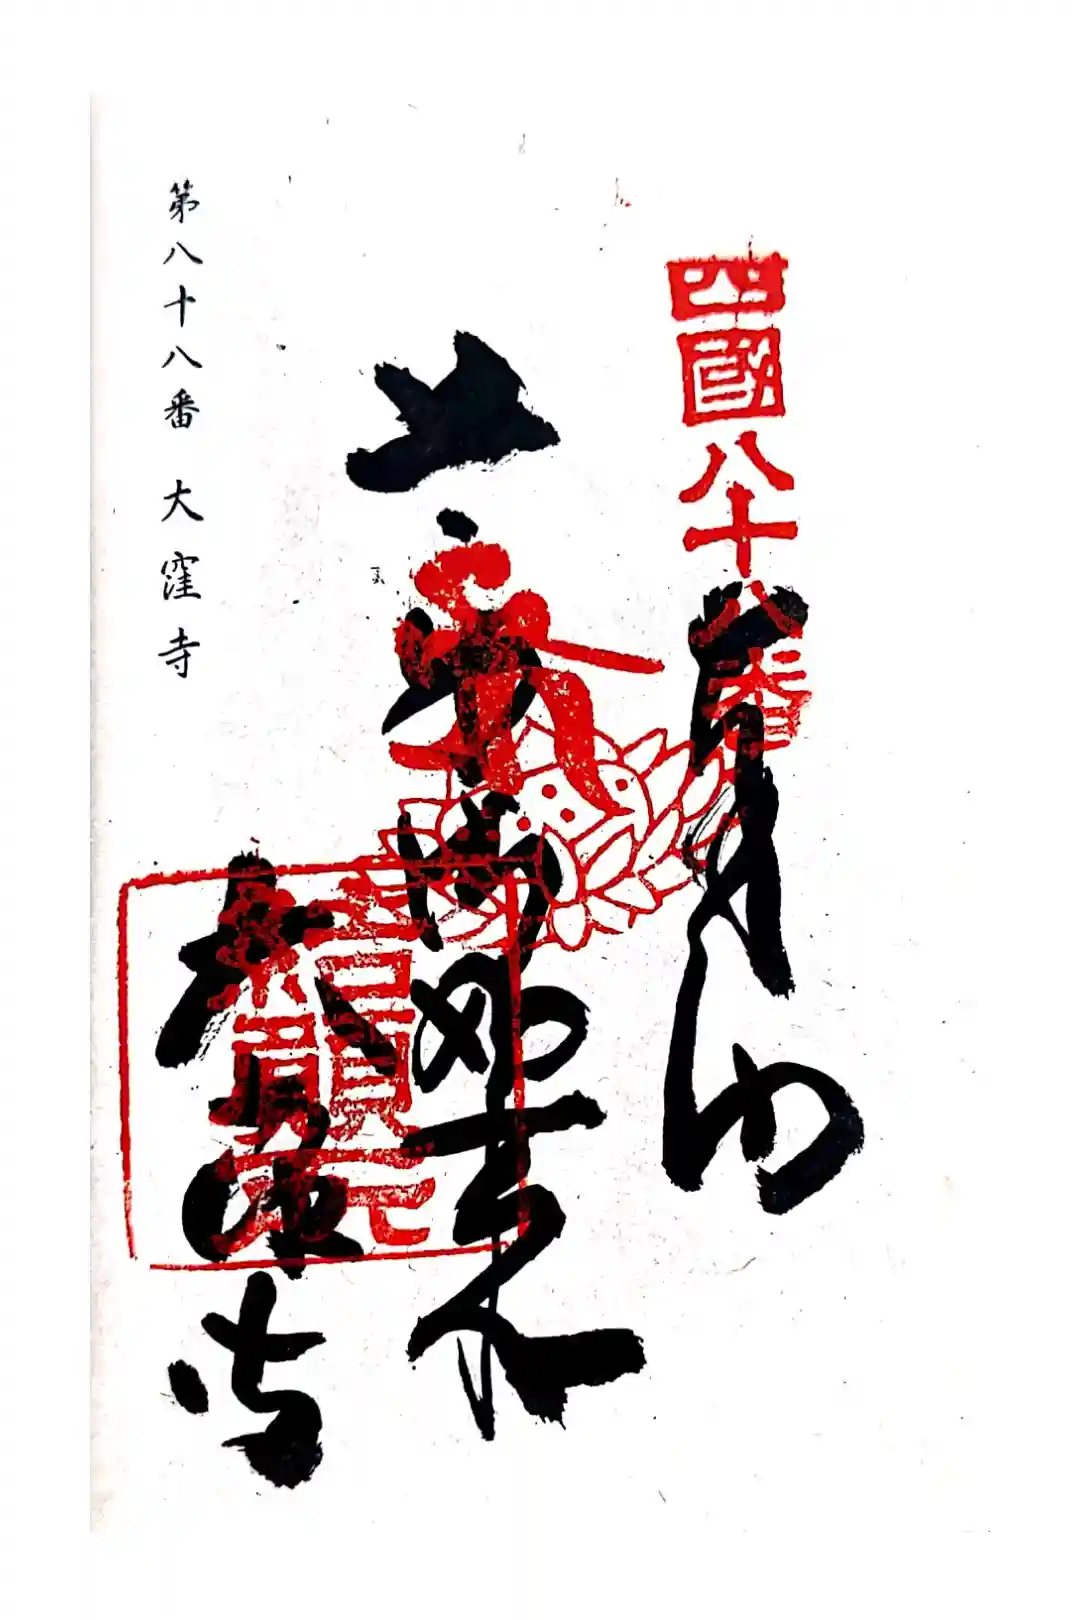 四國八十八番
奉納
薬師如来
大窪寺
第八十八番 大窪寺